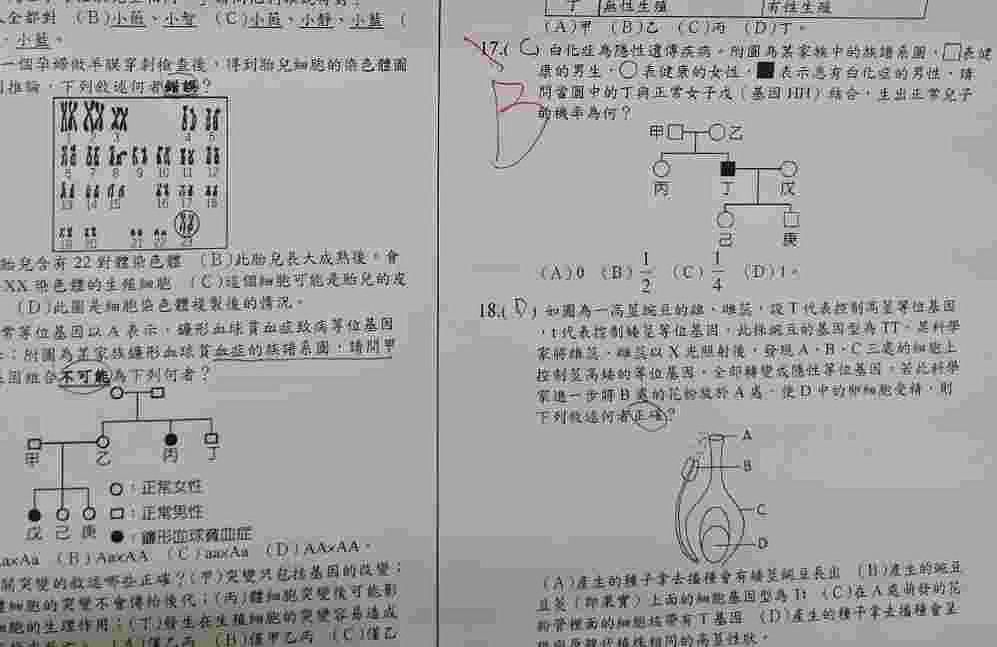 全都對 (B)小薇、小智 (C)小薇、小靜、小藍 (
、小藍。
一個孕婦做羊膜穿刺檢查後,得到胎兒細胞的染色體圖
推論,下列敘述何者錯誤?
1 2 3 4 5
6 7 8 9 10 11 12
13 14 15 16 17 18
19 20 21 22 23
胎兒含有 22 對體染色體 (B)此胎兒長大成熟後,會
XX 染色體的生殖細胞 (C)這個細胞可能是胎兒的皮
(D)此圖是細胞染色體複製後的情況。
常等位基因以 A 表示,鐮形血球貧血症致病等位基因
;附圖為某家族鐮形血球貧血症的族譜系圖,請問甲
基因組合不可能為下列何者?
甲 乙 丙 丁
○:正常女性
□:正常男性
戊 己 庚 ●:鐮形血球貧血症
aa×Aa (B)Aa×AA (C)aa×Aa (D)AA×AA。
關突變的敘述哪些正確?(甲)突變只包括基因的改變;
體細胞的突變不會傳給後代;(丙)體細胞突變後可能影
細胞的生理作用;(丁)發生在生殖細胞的突變容易造成
(A)僅乙丙 (B)僅甲乙丙 (C)僅乙
丁 無性生殖 有性生殖
(A)甲 (B)乙 (C)丙 (D)丁。
17.( C ) 白化症為隱性遺傳疾病。附圖為某家族中的族譜系圖,□表健
康的男生,○表健康的女性,■表示患有白化症的男性,請
B
問當圖中的丁與正常女子戊(基因 HH)結合,生出正常兒子
的機率為何?
甲 乙
丙 丁 戊
己 庚
(A)0 (B)1/2 (C)1/4 (D)1。
18.( D ) 如圖為一高莖豌豆的雄、雌蕊,設 T 代表控制高莖等位基因
,t 代表控制矮莖等位基因,此株豌豆的基因型為 TT。某科學
家將雄蕊、雌蕊以 X 光照射後,發現 A、B、C 三處的細胞上
控制莖高矮的等位基因,全部轉變成隱性等位基因。若此科學
家進一步將 B 處的花粉放於 A 處,使 D 中的卵細胞受精,則
下列敘述何者正確?
A
B
C
D
(A)產生的種子拿去播種會有矮莖豌豆長出 (B)產生的豌豆
豆莢(即果實)上面的細胞基因型為 Tt (C)在 A 處萌發的花
粉管裡面的細胞核帶有 T 基因 (D)產生的種子拿去播種會呈
現與原親代植株相同的高莖性狀。